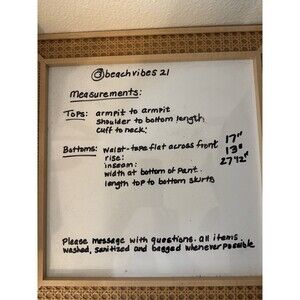 @beachvibes21
measurements:
Tops: armpit to armpit
shoulder to bottom length
cuff to neck:
Bottoms: waist-tape flat across front 17"
rise: 13"
inseam: 27 1/2"
width at bottom of pant.
length top to bottom skirts
Please message with questions. all items
washed, sanitized and bagged whenever possible